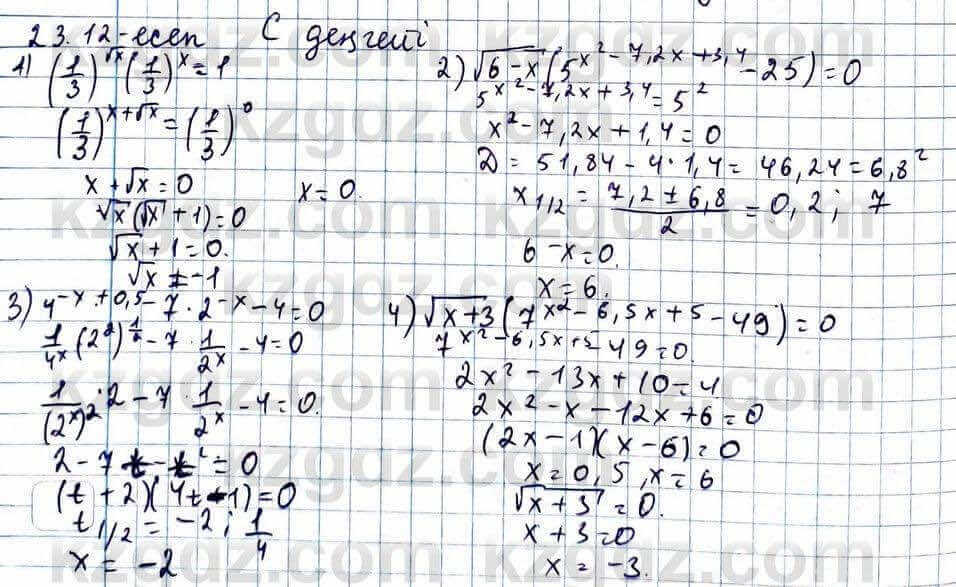 23.12-есеп    С деңгейі
1) (1/3)^√x (1/3)^x = 1
(1/3)^(x+√x) = (1/3)^0
x + √x = 0    x = 0.
√x(√x + 1) = 0
√x + 1 = 0.
√x ≠ -1
2) √6-x (5^(x²-7,2x+3,4) - 25) = 0
5^(x²-7,2x+3,4) = 5²
x² - 7,2x + 1,4 = 0
D = 51,84 - 4·1,4 = 46,24 = 6,8²
x1/2 = (7,2 ± 6,8)/2 = 0,2; 7
6 - x = 0.
x = 6.
3) 4^(-x+0,5) - 7·2^(-x) - 4 = 0
1/4^x (2²)^(1/2) - 7·1/2^x - 4 = 0
1/(2^x)²·2 - 7·1/2^x - 4 = 0.
2 - 7t - t² = 0
(t + 2)(4t - 1) = 0
t1/2 = -2; 1/4
x = -2
4) √x+3 (7^(x²-6,5x+5) - 49) = 0
7^(x²-6,5x+5) - 49 = 0
2x² - 13x + 10 = 4
2x² - x - 12x + 6 = 0
(2x - 1)(x - 6) = 0
x = 0,5, x = 6
√x + 3 = 0.
x + 3 = 0
x = -3.
kzgdz.com